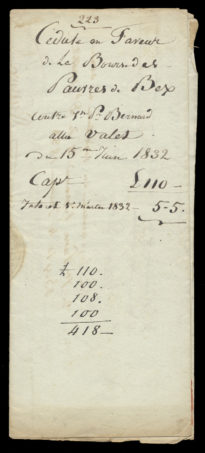 223
Cédule en Faveur
de la Bourse des
Pauvres de Bex
Contre Jn Ps Bernard
allié Valet
du 15me Juin 1832
Capl £110 —
Interet St Martin 1832 — 5-5.
£ 110.
100.
108.
100
418 —